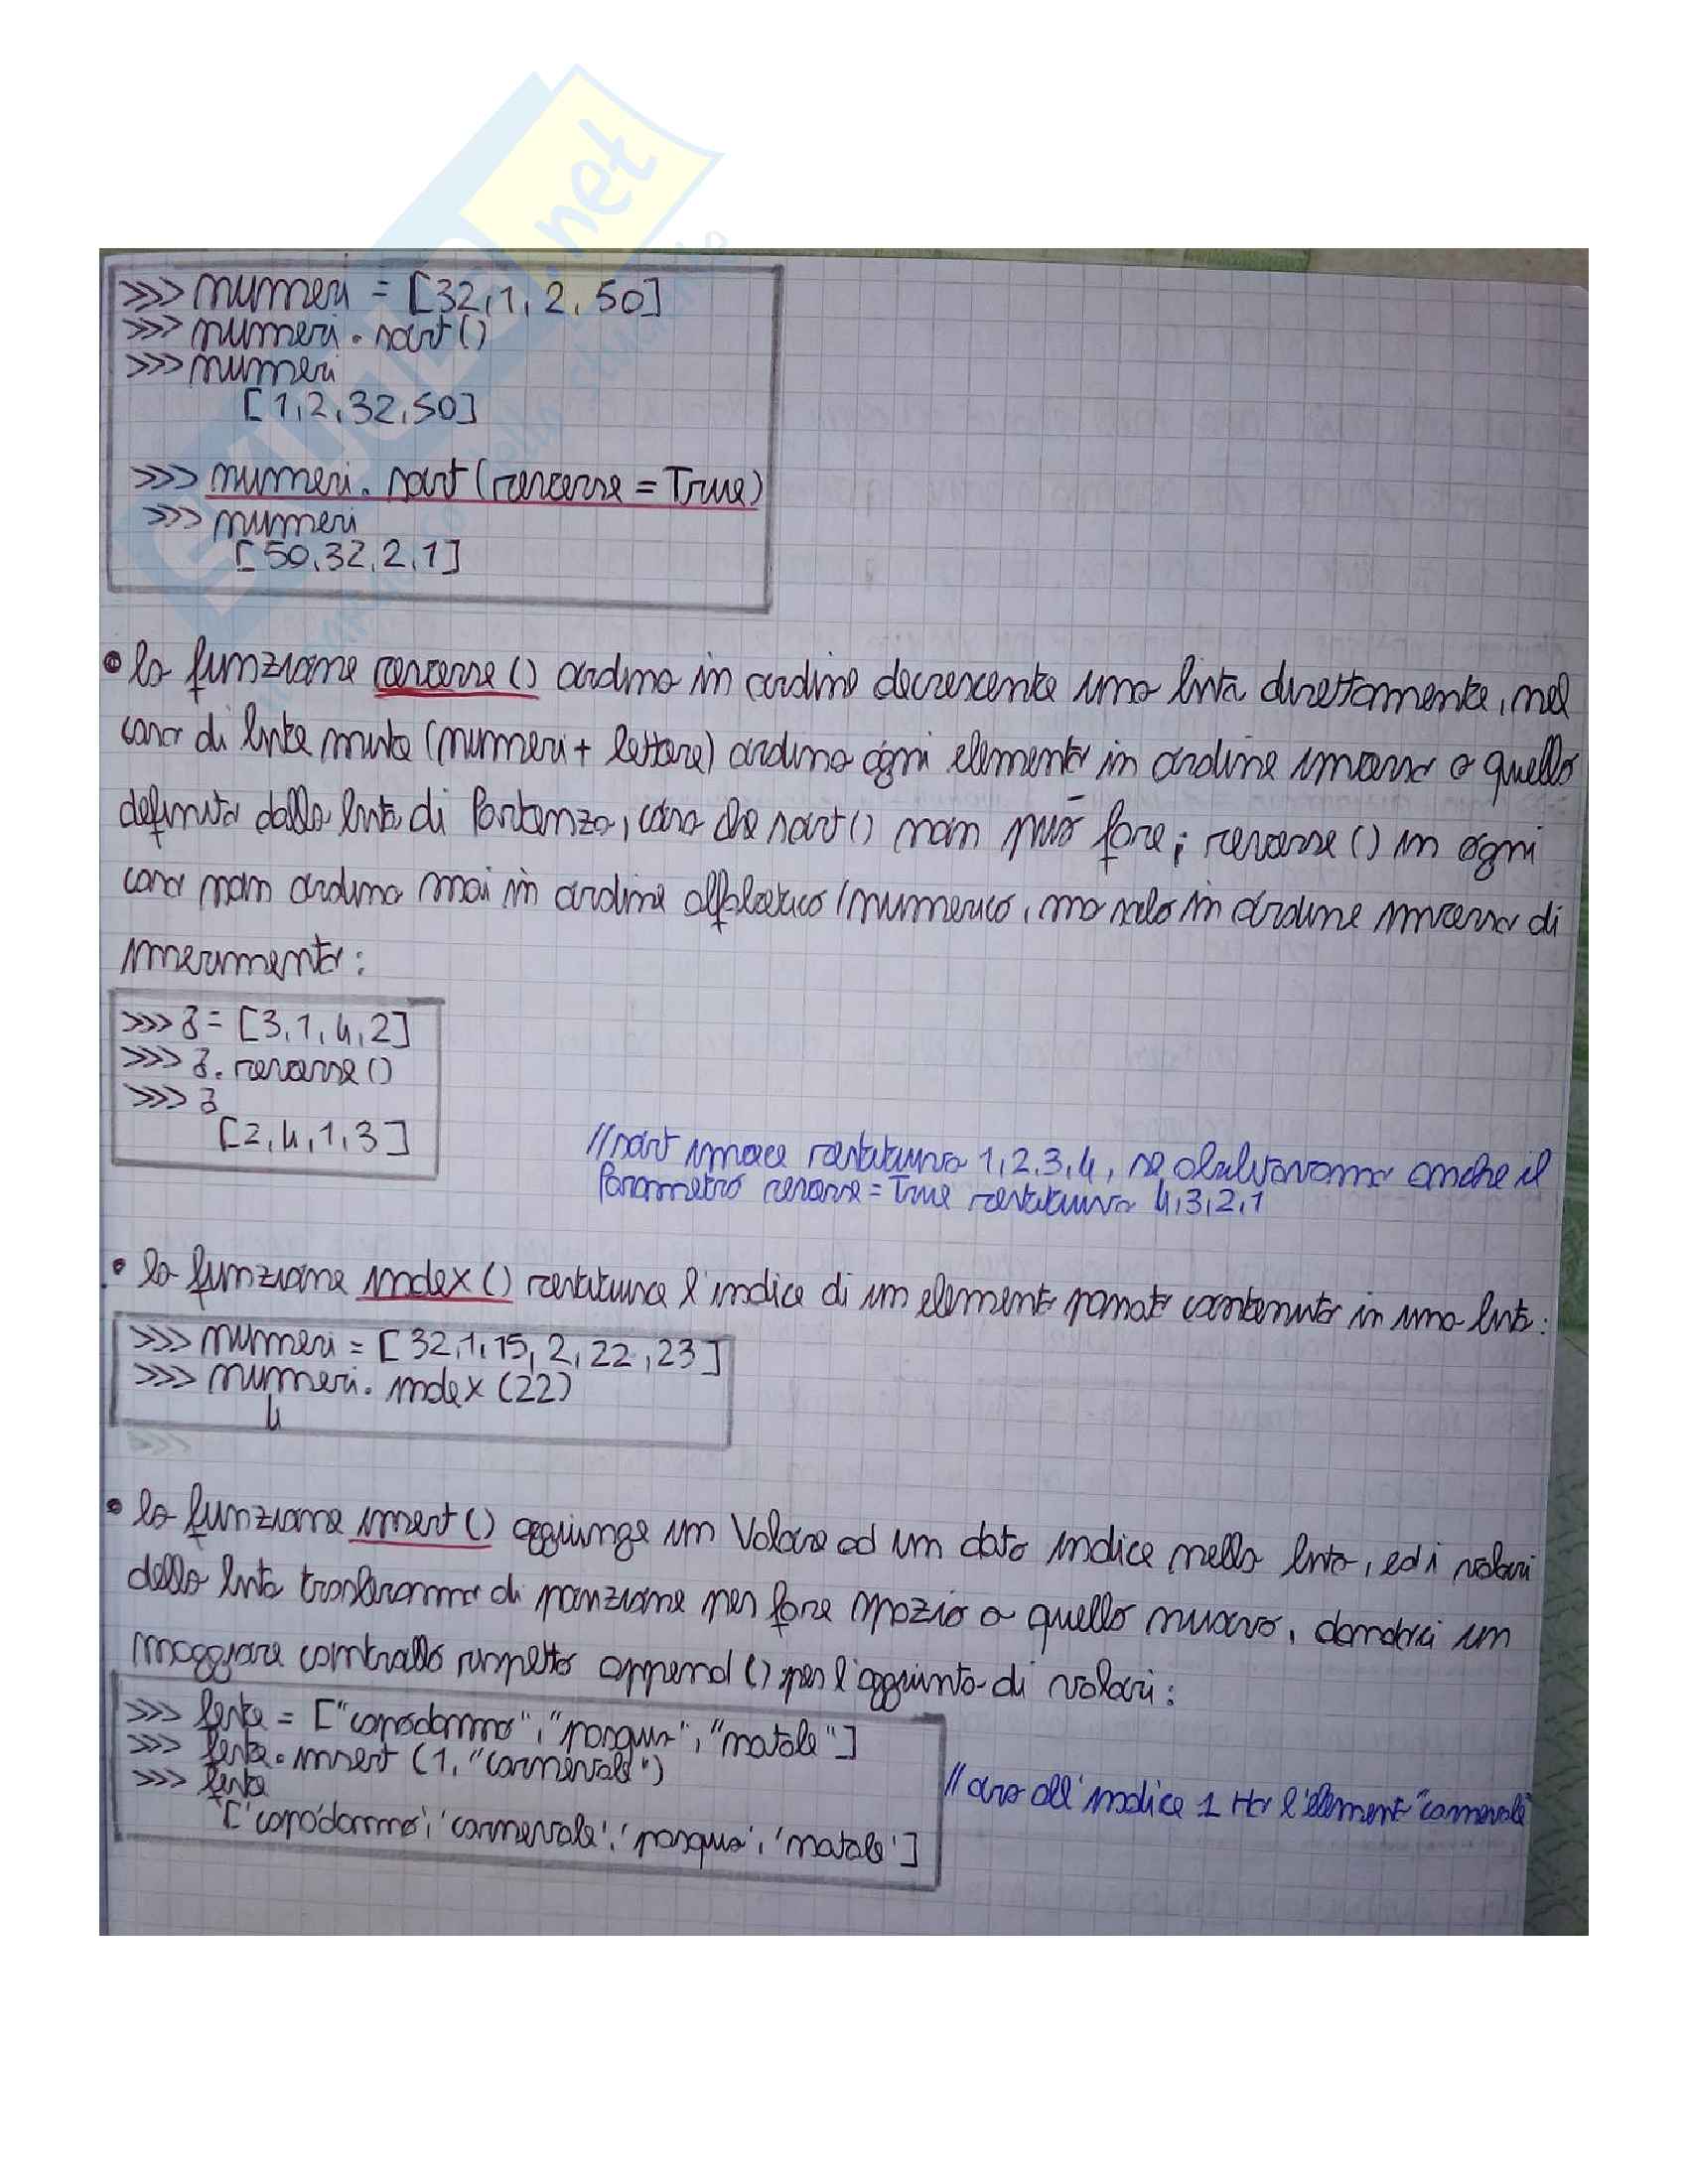 SKUOLA.net
>>> numeri = [32,1,2,50]
>>> numeri.sort()
>>> numeri
[1,2,32,50]
>>> numeri.sort(reverse=True)
>>> numeri
[50,32,2,1]
• la funzione reverse() ordina in ordine decrescente una lista direttamente, nel
caso di liste miste (numeri + lettere) ordina ogni elemento in ordine inverso a quello
definito dalla lista di partenza, cosa che sort() non può fare; reverse() in ogni
caso non ordina mai in ordine alfabetico/numerico, ma solo in ordine inverso di
inserimento:
>>> z = [3,1,4,2]
>>> z.reverse()
>>> z
[2,4,1,3]
//sort invece restituiva 1,2,3,4, se abilitavamo anche il
parametro reverse=True restituiva 4,3,2,1
• la funzione index() restituisce l'indice di un elemento passato contenuto in una lista:
>>> numeri = [32,1,15,2,22,23]
>>> numeri.index(22)
4
>>>
• la funzione insert() aggiunge un valore ad un dato indice nella lista, ed i valori
della lista trasleranno di posizione per fare spazio a quello nuovo, dandoci un
maggiore controllo rispetto append() per l'aggiunta di valori:
>>> feste = ["capodanno", "pasqua", "natale"]
>>> feste.insert(1, "carnevale")
>>> feste
['capodanno', 'carnevale', 'pasqua', 'natale']
//ora all'indice 1 ho l'elemento "carnevale"